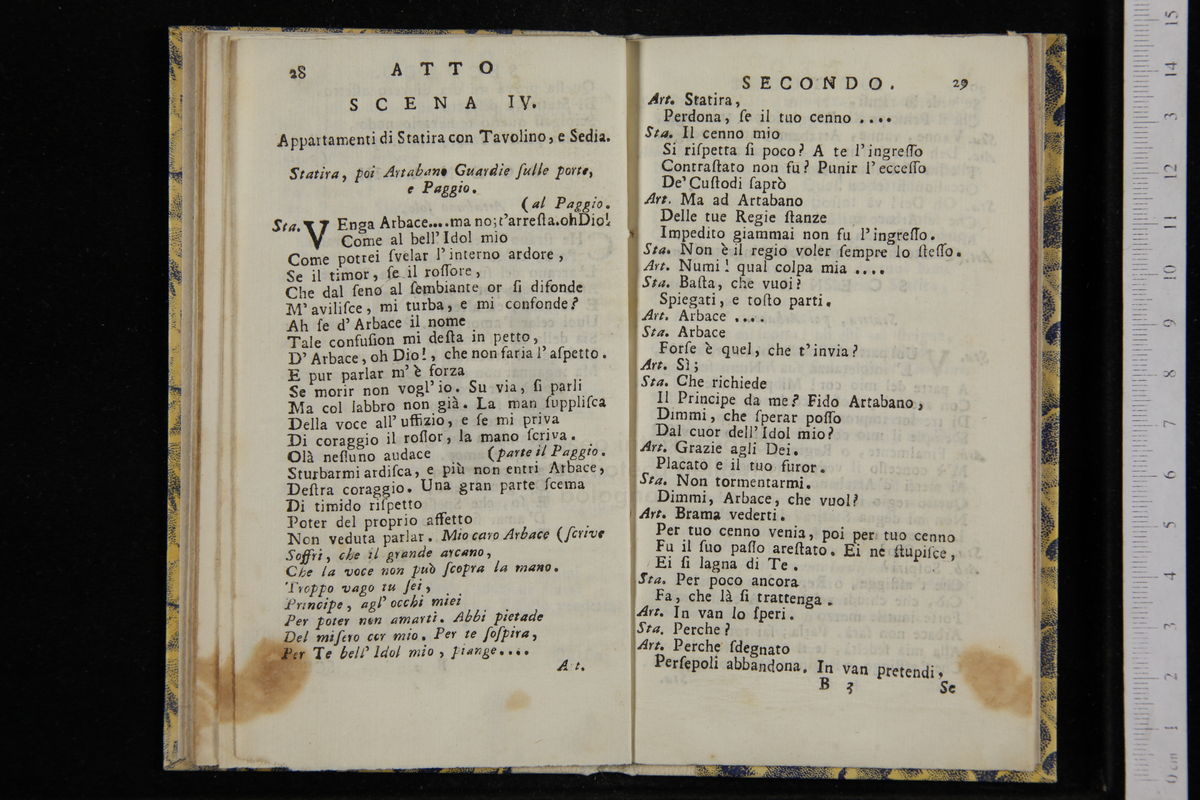 28 ATTO
SCENA IV.
Appartamenti di Statira con Tavolino, e Sedia.
Statira, poi Artabano Guardie ſulle porte,
e Paggio.
(al Paggio.
Sta. VEnga Arbace....ma no; t'arreſta. oh Dio!
Come al bell' Idol mio
Come potrei ſvelar l'interno ardore,
Se il timor, ſe il roſſore,
Che dal ſeno al ſembiante or ſi difonde
M' aviliſce, mi turba, e mi confonde?
Ah ſe d' Arbace il nome
Tale confuſion mi deſta in petto,
D' Arbace, oh Dio!, che non faria l' aſpetto.
E pur parlar m' è forza
Se morir non vogl' io. Su via, ſi parli
Ma col labbro non già. La man ſuppliſca
Della voce all' uffizio, e ſe mi priva
Di coraggio il roſſor, la mano ſcriva.
Olà neſſuno audace (parte il Paggio.
Sturbarmi ardiſca, e più non entri Arbace,
Deſtra coraggio. Una gran parte ſcema
Di timido riſpetto
Poter del proprio affetto
Non veduta parlar. Mio caro Arbace (ſcrive
Soffri, che il grande arcano,
Che la voce non può ſcopra la mano.
Troppo vago tu ſei,
Principe, agl' occhi miei
Per poter non amarti. Abbi pietade
Del miſero cor mio. Per te ſoſpira,
Per Te bell' Idol mio, piange....
A t.
SECONDO. 29
Art. Statira,
Perdona, ſe il tuo cenno ....
Sta. Il cenno mio
Si riſpetta ſi poco? A te l' ingreſſo
Contraſtato non fu? Punir l' ecceſſo
De' Cuſtodi ſaprò
Art. Ma ad Artabano
Delle tue Regie ſtanze
Impedito giammai non fu l' ingreſſo.
Sta. Non è il regio voler ſempre lo ſteſſo.
Art. Numi! qual colpa mia ....
Sta. Baſta, che vuoi?
Spiegati, e toſto parti.
Art. Arbace ....
Sta. Arbace
Forſe è quel, che t' invia?
Art. Sì;
Sta. Che richiede
Il Principe da me? Fido Artabano,
Dimmi, che ſperar poſſo
Dal cuor dell' Idol mio?
Art. Grazie agli Dei.
Placato e il tuo furor.
Sta. Non tormentarmi.
Dimmi, Arbace, che vuol?
Art. Brama vederti.
Per tuo cenno venia, poi per tuo cenno
Fu il ſuo paſſo areſtato. Ei ne ſtupiſce,
Ei ſi lagna di Te.
Sta. Per poco ancora
Fa, che là ſi trattenga.
Art. In van lo ſperi.
Sta. Perche?
Art. Perche ſdegnato
Perſepoli abbandona. In van pretendi,
B 3 Se
15
14
13
12
11
10
9
8
7
6
5
4
3
2
1
0 cm